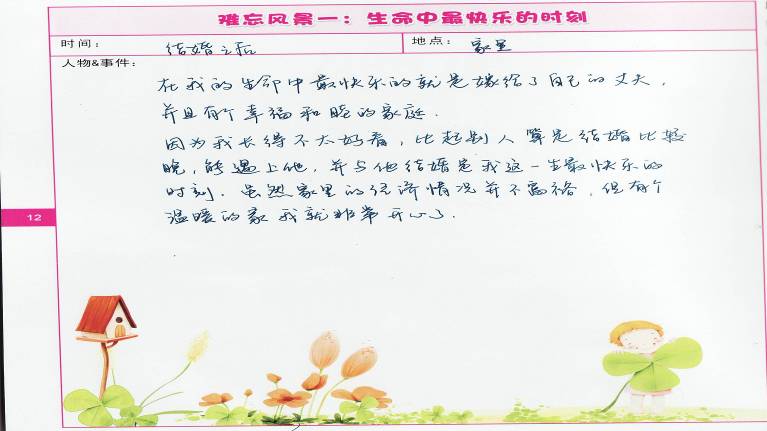 难忘风景一：生命中最快乐的时刻
时间： 结婚之后 地点： 家里
人物&事件：
在我的生命中最快乐的就是嫁给了自己的丈夫，
并且有个幸福和睦的家庭.
因为我长得不太好看，比起别人算是结婚比较
晚，能遇上他，并与他结婚是我这一生最快乐的
时刻. 虽然家里的经济情况并不富裕，但有个
温暖的家我就非常开心了.
12